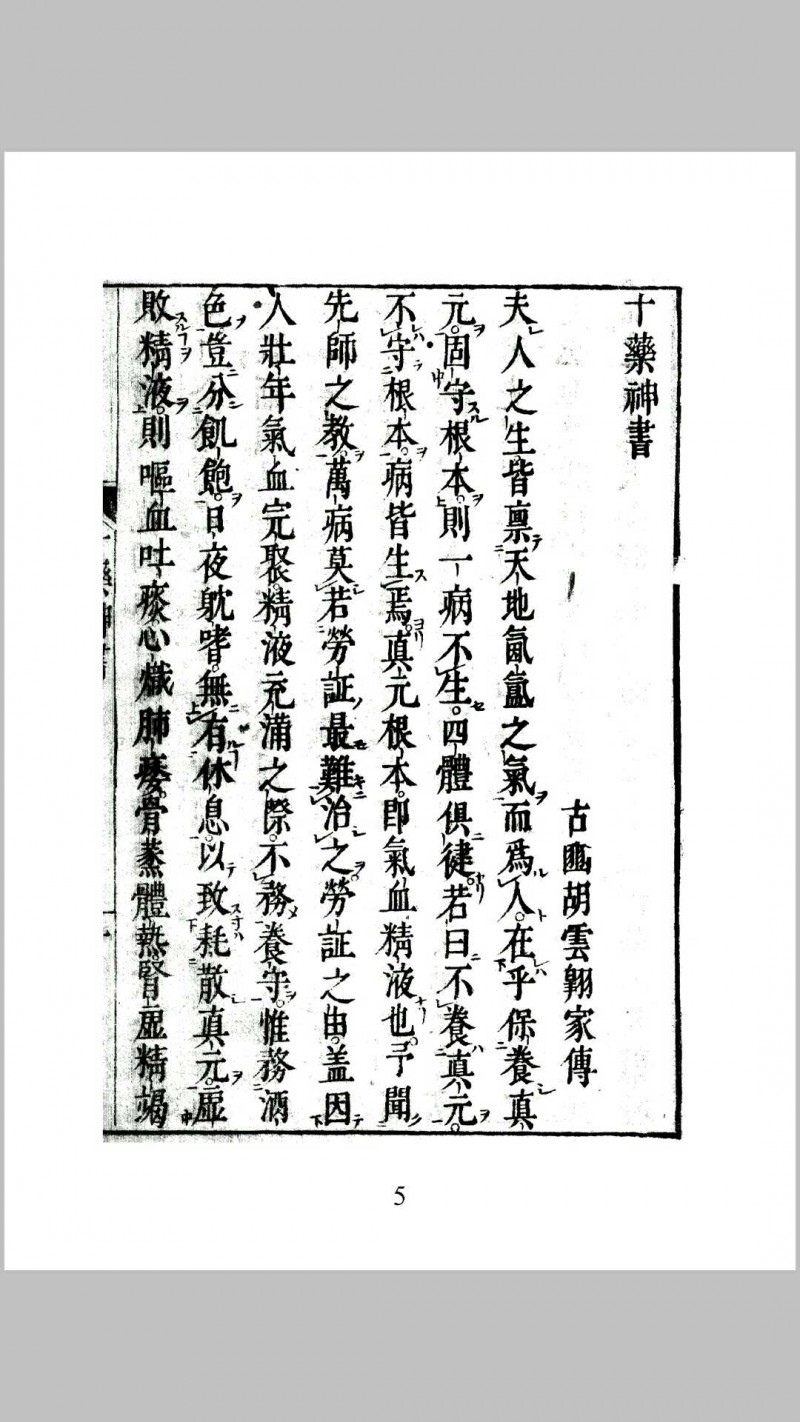 十藥神書
古匭胡雲翱家傳
夫人之生皆禀天地氤氳之氣而爲人在乎保養真
元固守根本則一病不生四體俱徤若曰不養真元
不守根本病皆生焉真元根本即氣血精液也予聞
先師之教萬病莫若勞証最難治之勞証之由盖因
人壯年氣血完聚精液充滿之際不務養守惟務酒
色豈分飢飽日夜躭嗜無有休息以致耗散真元虛
敗精液則嘔血吐痰心熾肺痿骨蒸體熱腎虛精竭
5